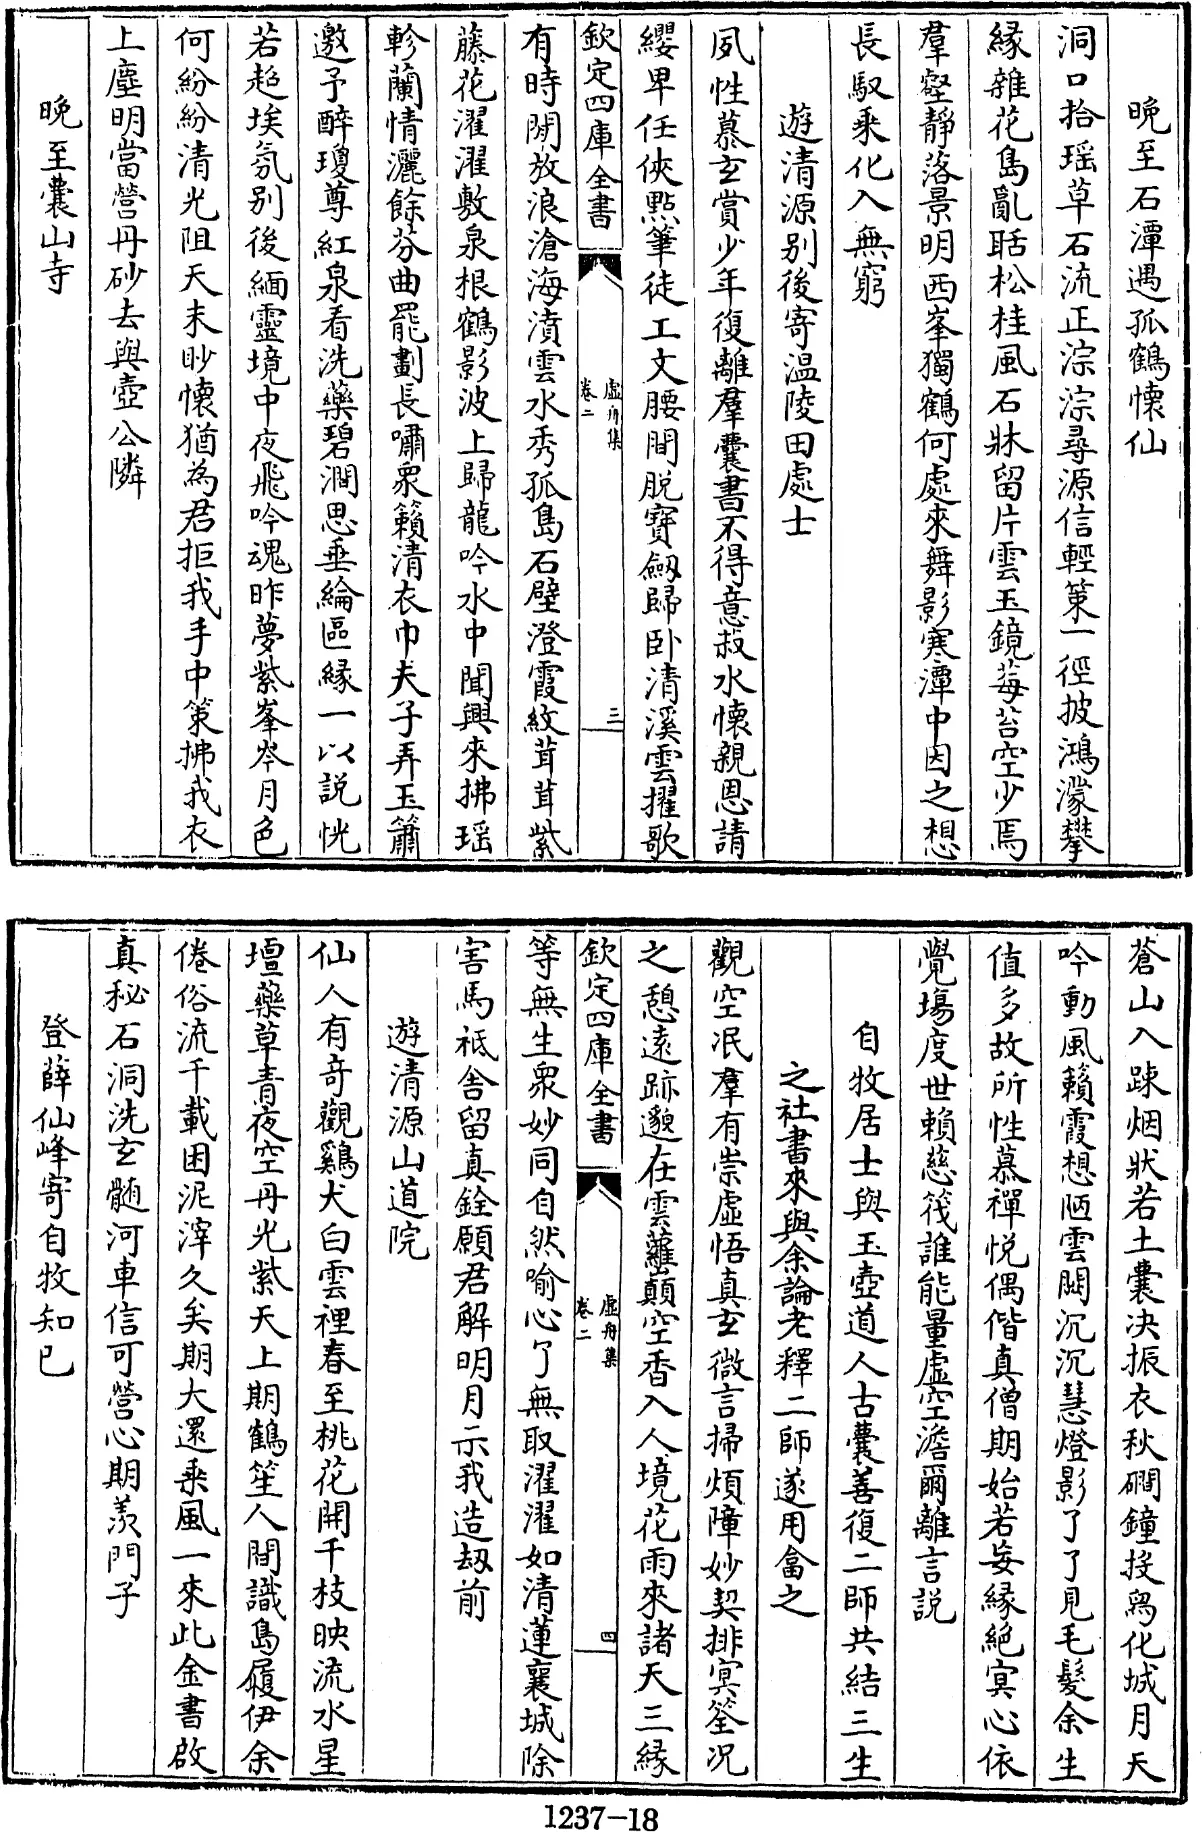 晚至石潭遇孤鶴懷仙
洞口拾瑶草石流正淙淙尋源信輕策一徑披鴻濛攀
緣雜花島亂聒松桂風石牀留片雲玉鏡莓苔空少焉
羣壑靜落景明西峯獨鶴何處來舞影寒潭中因之想
長馭乘化入無窮
遊清源别後寄温陵田處士
夙性慕玄賞少年復離羣囊書不得意菽水懷親恩請
纓卑任俠點筆徒工文腰間脱寶劔歸卧清溪雲擢歌
欽定四庫全書
虚舟集
卷二
三
有時閒放浪滄海濆雲水秀孤島石壁澄霞紋茸茸紫
藤花濯濯敷泉根鶴影波上歸龍吟水中聞興來拂瑶
軫蘭情灑餘芬曲罷劃長嘯衆籟清衣巾夫子弄玉簫
邀予醉瓊尊紅泉看洗藥碧澗思垂綸區緣一以説恍
若超埃氛别後緬靈境中夜飛吟魂昨夢紫峯岑月色
何紛紛清光阻天末眇懷猶為君拒我手中策拂我衣
上塵明當營丹砂去與壺公隣
晚至囊山寺
蒼山入踈烟狀若土囊决振衣秋磵鐘投舄化城月天
吟動風籟霞想陋雲闕沉沉慧燈影了了見毛髮余生
值多故所性慕禪悦偶偕真僧期始若妄緣絶冥心依
覺場度世賴慈筏誰能量虚空澹爾離言説
自牧居士與玉壺道人古囊善復二師共結三生
之社書來與余論老釋二師遂用畣之
觀空泯羣有崇虚悟真玄微言掃煩障妙契排冥筌况
之憩遠跡邈在雲蘿巔空香入人境花雨來諸天三緣
欽定四庫全書
虚舟集
卷二
四
等無生衆妙同自然喻心了無取濯濯如清蓮襄城除
害馬祗舍留真銓願君解明月示我造刼前
遊清源山道院
仙人有奇觀鷄犬白雲裡春至桃花開千枝映流水星
壇藥草青夜空丹光紫天上期鶴笙人間識島履伊余
倦俗流千載困泥滓久矣期大還乘風一來此金書啟
真秘石洞洗玄髓河車信可營心期羨門子
登薛仙峰寄自牧知已
1237-18